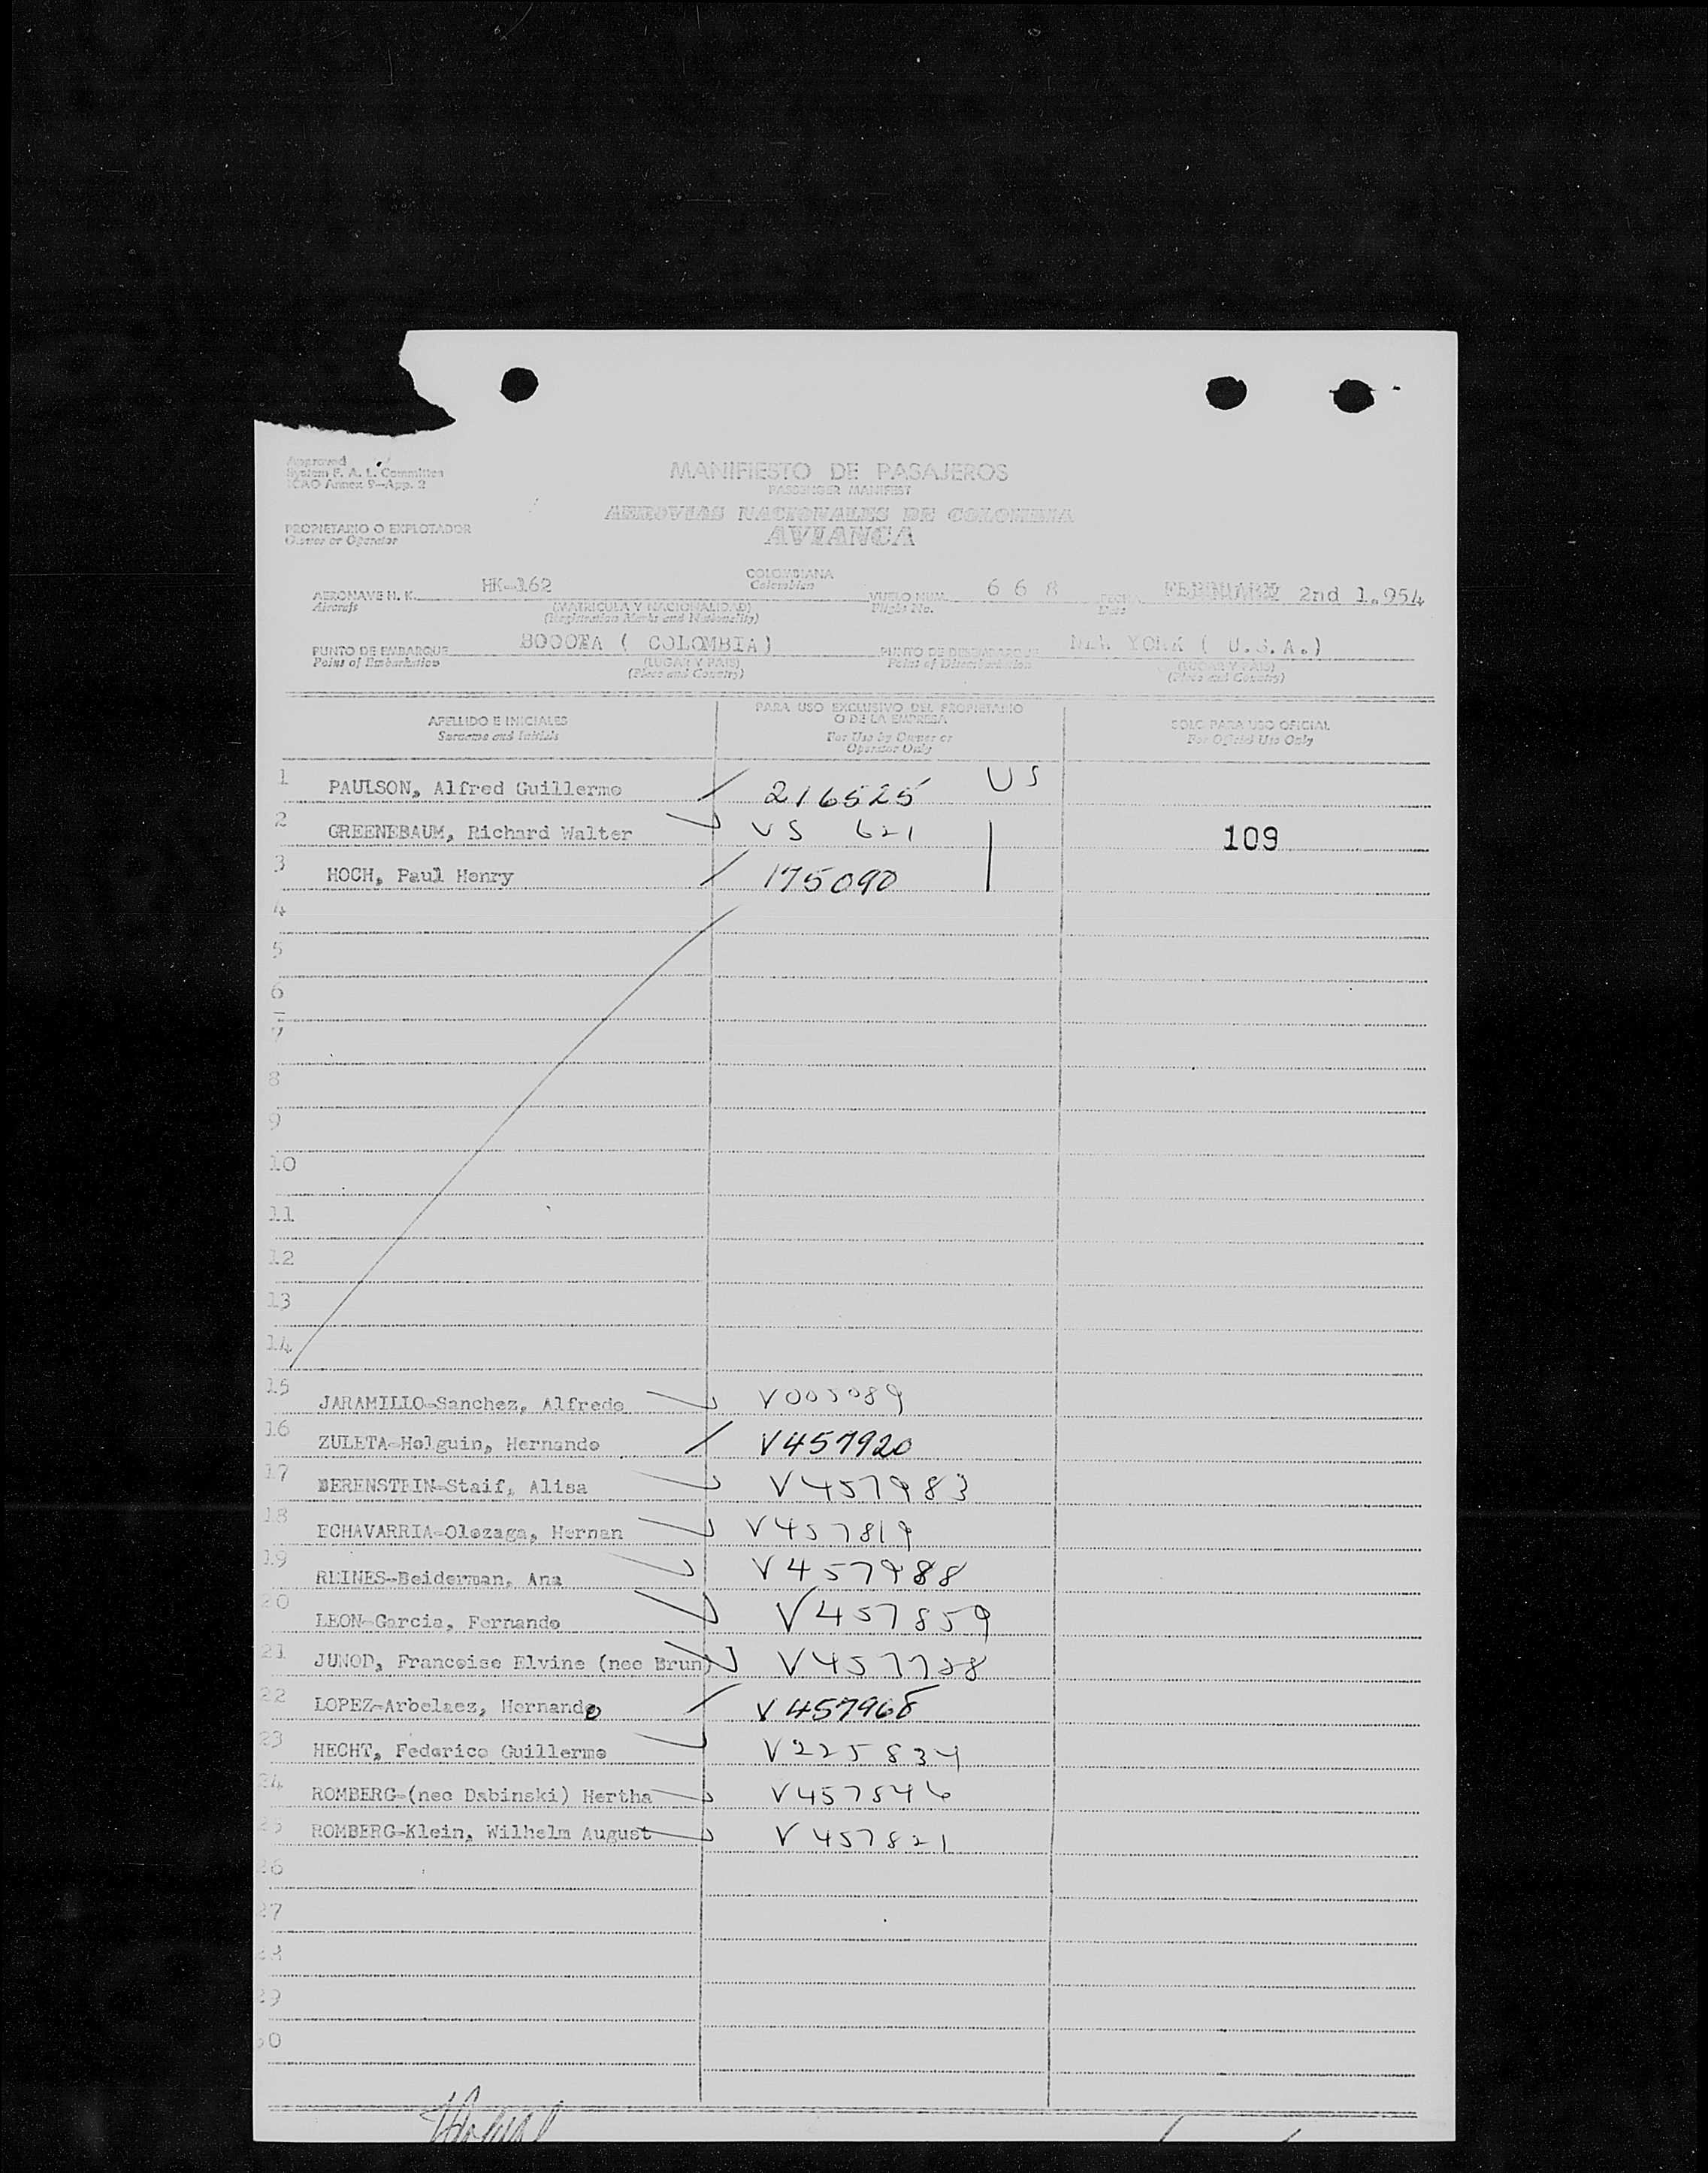 Approved
System F. A. L. Committee
ICAO Annex 9-App. 2
MANIFIESTO DE PASAJEROS
PASSENGER MANIFEST
PROPIETARIO O EXPLOTADOR
Owner or Operator
AEROVIAS NACIONALES DE COLOMBIA
AVIANCA
AERONAVE H. K. HK-162 COLOMBIANA VUELO NUM. 6 6 8 FECHA FEBRUARY 2nd 1.954
Aircraft (MATRICULA Y NACIONALIDAD) Colombian Flight No. Date
(Registration Marks and Nationality)
PUNTO DE EMBARQUE BOGOTA ( COLOMBIA) PUNTO DE DESEMBARQUE NEW YORK ( U.S.A.)
Point of Embarkation (LUGAR Y PAIS) Point of Disembarkation (LUGAR Y PAIS)
(Place and Country) (Place and Country)
APELLIDO E INICIALES
Surname and Initials
PARA USO EXCLUSIVO DEL PROPIETARIO
O DE LA EMPRESA
For Use by Owner or
Operator Only
SOLO PARA USO OFICIAL
For Official Use Only
1 PAULSON, Alfred Guillermo 216525 US
2 GREENEBAUM, Richard Walter VS 621 109
3 HOCH, Paul Henry 175090
4
5
6
7
8
9
10
11
12
13
14
15 JARAMILLO-Sanchez, Alfredo V005089
16 ZULETA-Holguin, Hernando V457920
17 BERENSTEIN-Staif, Alisa V457983
18 ECHAVARRIA-Olozaga, Hernan V457819
19 REINES-Beiderman, Ana V457988
20 LEON-Garcia, Fernando V457859
21 JUNOD, Francoise Elvine (nee Brun) V457728
22 LOPEZ-Arbelaez, Hernando V457968
23 HECHT, Federico Guillermo V225834
24 ROMBERG-(nee Dabinski) Hertha V457846
25 ROMBERG-Klein, Wilhelm August V457821
26
27
28
29
30